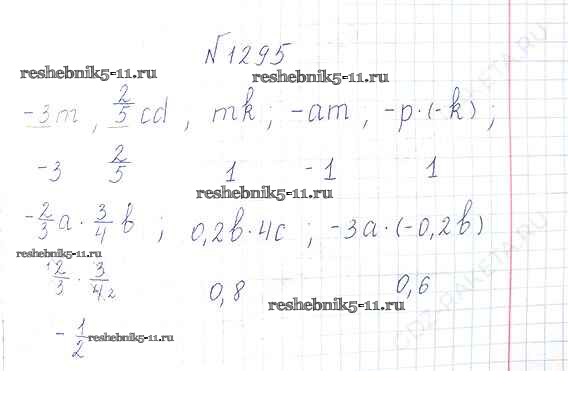 №1295
reshebnik5-11.ru
reshebnik5-11.ru
-3m, 2/5 cd, mk; -am, -p·(-k);
-3 2/5 1 -1 1
reshebnik5-11.ru
-2/3 a · 3/4 b; 0,2b·4c; -3a·(-0,2b)
reshebnik5-11.ru
2/3 · 3/4 2
0,8 0,6
reshebnik5-11.ru
-1/2 reshebnik5-11.ru
GDZ-RAKETA.RU
GDZ-RAKETA.RU